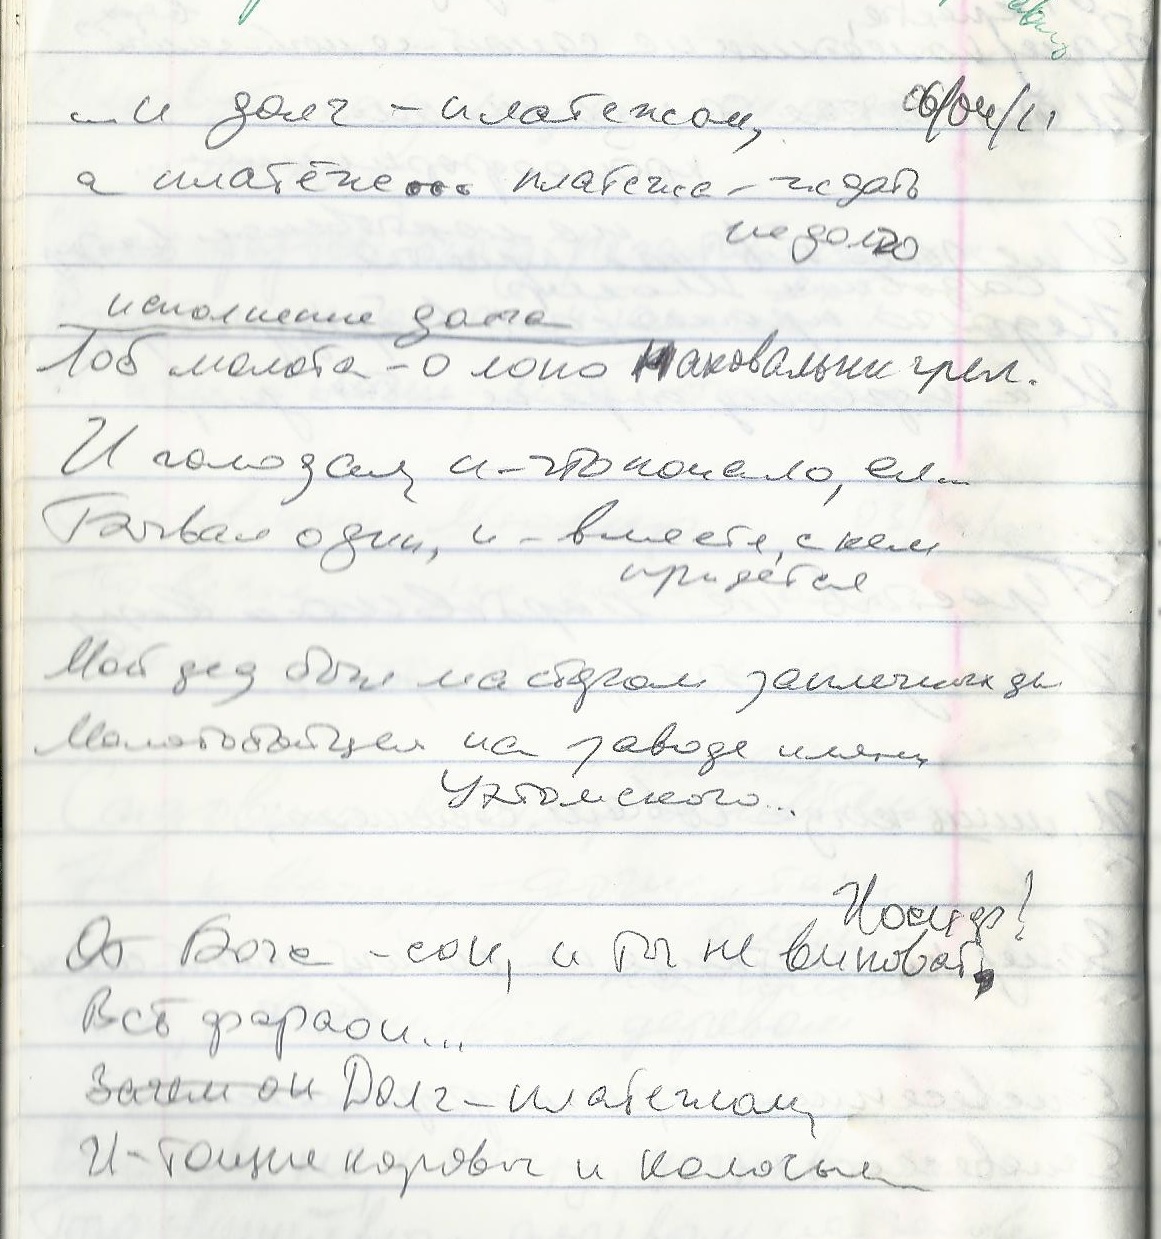 ...и долг – платежом, 06/04/11
а платёж... платежа – ждать
недолго
исполнение долга
Лоб молота – о лоно наковальни грел.
И голодал, и – что попало, ел...
Бывал один, и – вместе, с кем
придётся
Мой дед был мастером заплечных дел
Молотобойцем на заводе имени
Ухтомского...
Иосиф!
От Бога – сон, и ты не виноват,
Всё фараон...
Зачем он Долг – платежом,
И – тощие коровы и колосья...